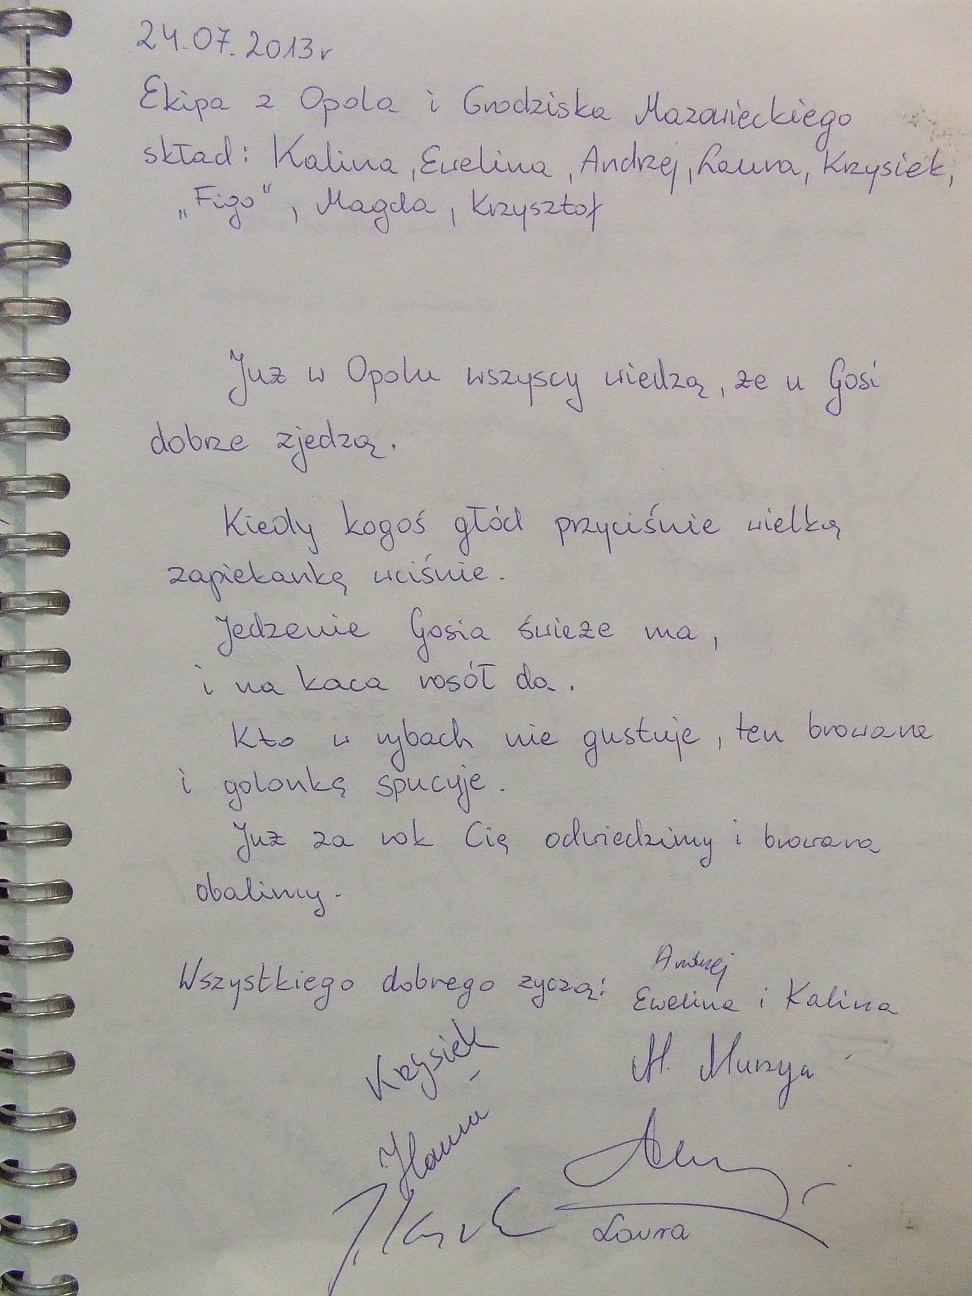 24.07.2013r
Ekipa z Opola i Grodziska Mazowieckiego
skład: Kalina, Ewelina, Andrzej, Laura, Krzysiek,
„Figo", Magda, Krzysztof
Już w Opolu wszyscy wiedzą, że u Gosi
dobrze zjedzą.
Kiedy kogoś głód przyciśnie wielką
zapiekankę wciśnie.
Jedzenie Gosia świeże ma,
i na kaca rosół da.
Kto w rybach nie gustuje, ten browara
i golonkę spucuje.
Już za rok Cię odwiedzimy i browara
obalimy.
Wszystkiego dobrego życzą:
Andrzej
Ewelina i Kalina
Krzysiek
M.
Laura